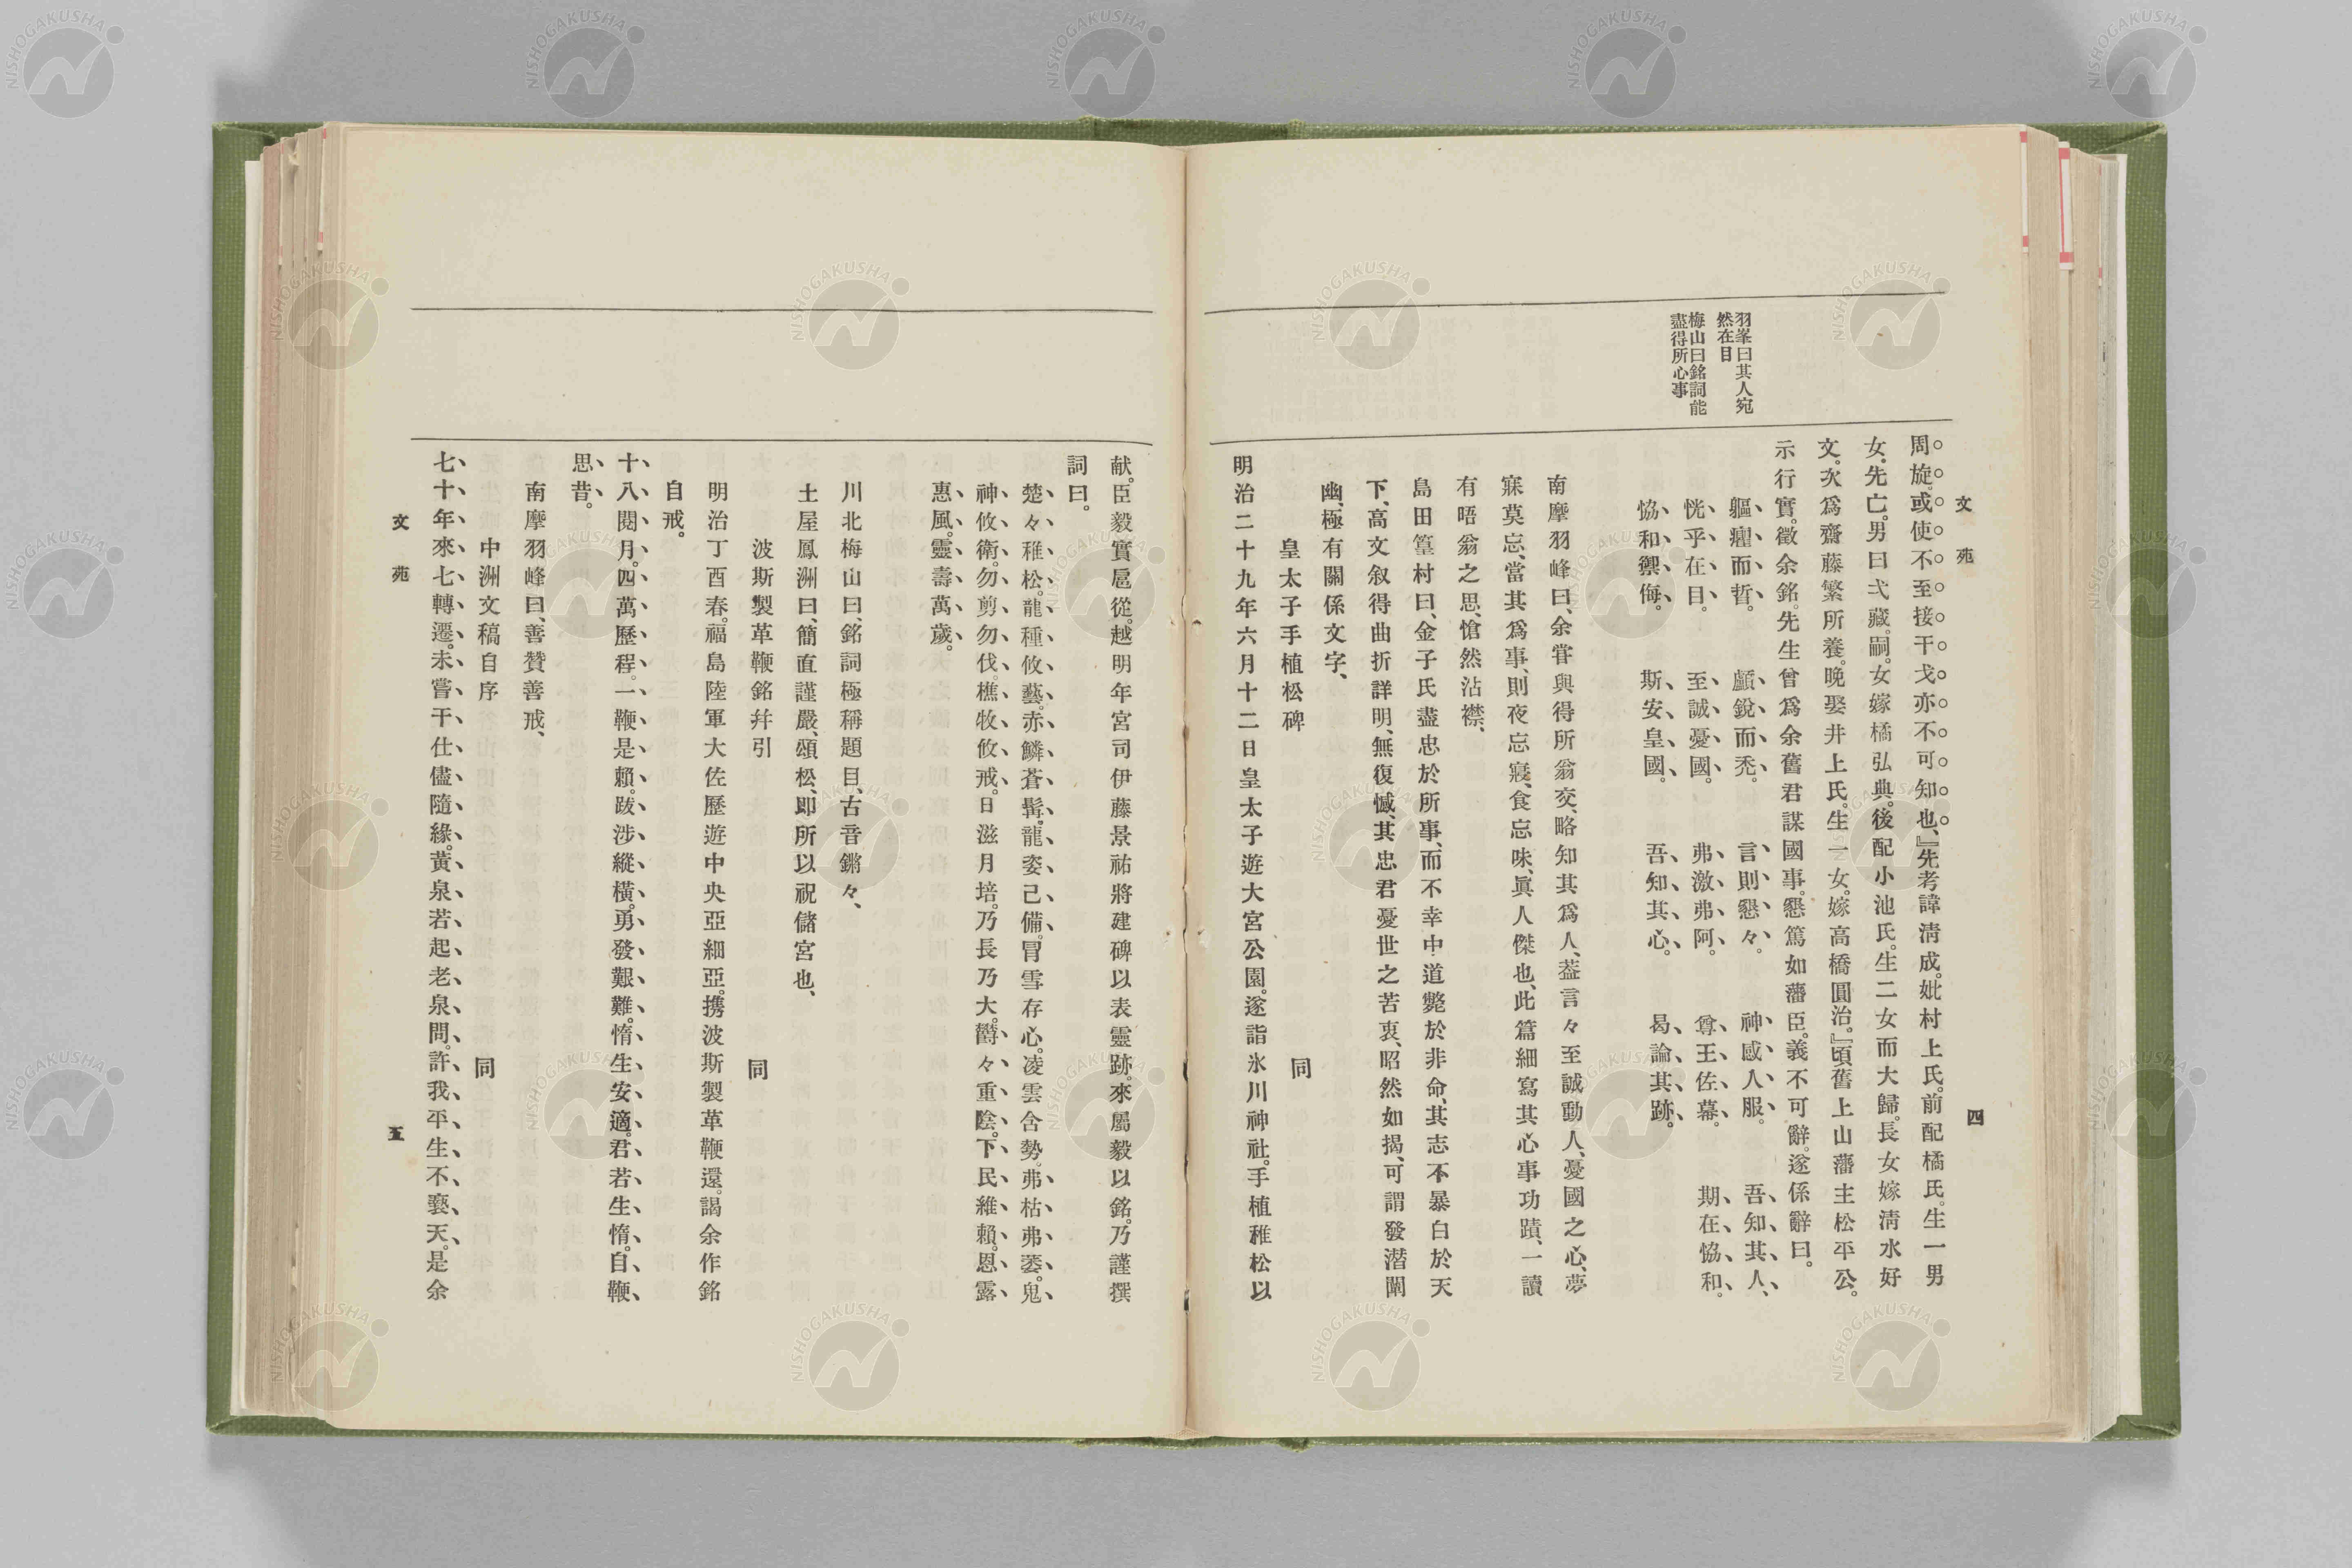 文苑
四
羽峯曰其人宛
然在目
梅山曰銘詞能
盡得所心事
周旋。或使不至接干戈亦不可知也、』先考諱淸成。妣村上氏。前配橘氏。生一男
女。先亡。男曰弌藏。嗣。女嫁橘弘典。後配小池氏。生二女而大歸。長女嫁淸水好
文。次爲齋藤繁所養。晚娶井上氏。生一女。嫁高橋圓治。』頃舊上山藩主松平公。
示行實。徵余銘。先生曾爲余舊君謀國事。懇篤如藩臣。義不可辭。遂係辭曰。
軀癯而晳。 顱銳而禿。 言則懇々。 神感人服。 吾知其人、
恍乎在目。 至誠憂國。 弗激弗阿。 尊王佐幕。 期在恊和。
恊和禦侮。 斯安皇國。 吾知其心。 曷論其跡。
南摩羽峰曰、余甞與得所翁交、略知其爲人、葢言々至誠動人、憂國之心、夢
寐莫忘、當其爲事、則夜忘寢、食忘味、眞人傑也、此篇細寫其心事功蹟、一讀
有晤翁之思、愴然沾襟、
島田篁村曰、金子氏盡忠於所事、而不幸中道斃於非命、其志不暴白於天
下、高文叙得曲折詳明、無復憾、其忠君憂世之苦衷、昭然如揭、可謂發潛闡
幽、極有關係文字、
皇太子手植松碑 同
明治二十九年六月十二日皇太子遊大宮公園。遂詣氷川神社。手植稚松以
献。臣毅實扈從。越明年宮司伊藤景祐將建碑以表靈跡。來屬毅以銘。乃謹撰
詞曰。
楚々稚松。龍種攸藝。赤鱗蒼髯。龍姿已備。冐雪存心。凌雲含勢。弗枯弗萎。鬼
神攸衛。勿剪勿伐。樵牧攸戒。日滋月培。乃長乃大。欝々重陰。下民維賴。恩露
惠風。靈壽萬歲。
川北梅山曰、銘詞極稱題目、古音鏘々、
土屋鳳洲曰、簡直謹嚴、頌松、卽所以祝儲宮也、
波斯製革鞭銘幷引 同
明治丁酉春。福島陸軍大佐歷遊中央亞細亞。携波斯製革鞭還。謁余作銘
自戒。
十八閱月。四萬歷程。一鞭是賴。跋涉縱橫。勇發艱難。惰生安適。君若生惰。自鞭
思昔。
南摩羽峰曰、善贊善戒、
中洲文稿自序 同
七十年來七轉遷。未嘗干仕儘隨緣。黃泉若起老泉問。許我平生不褻天。是余
文苑
五